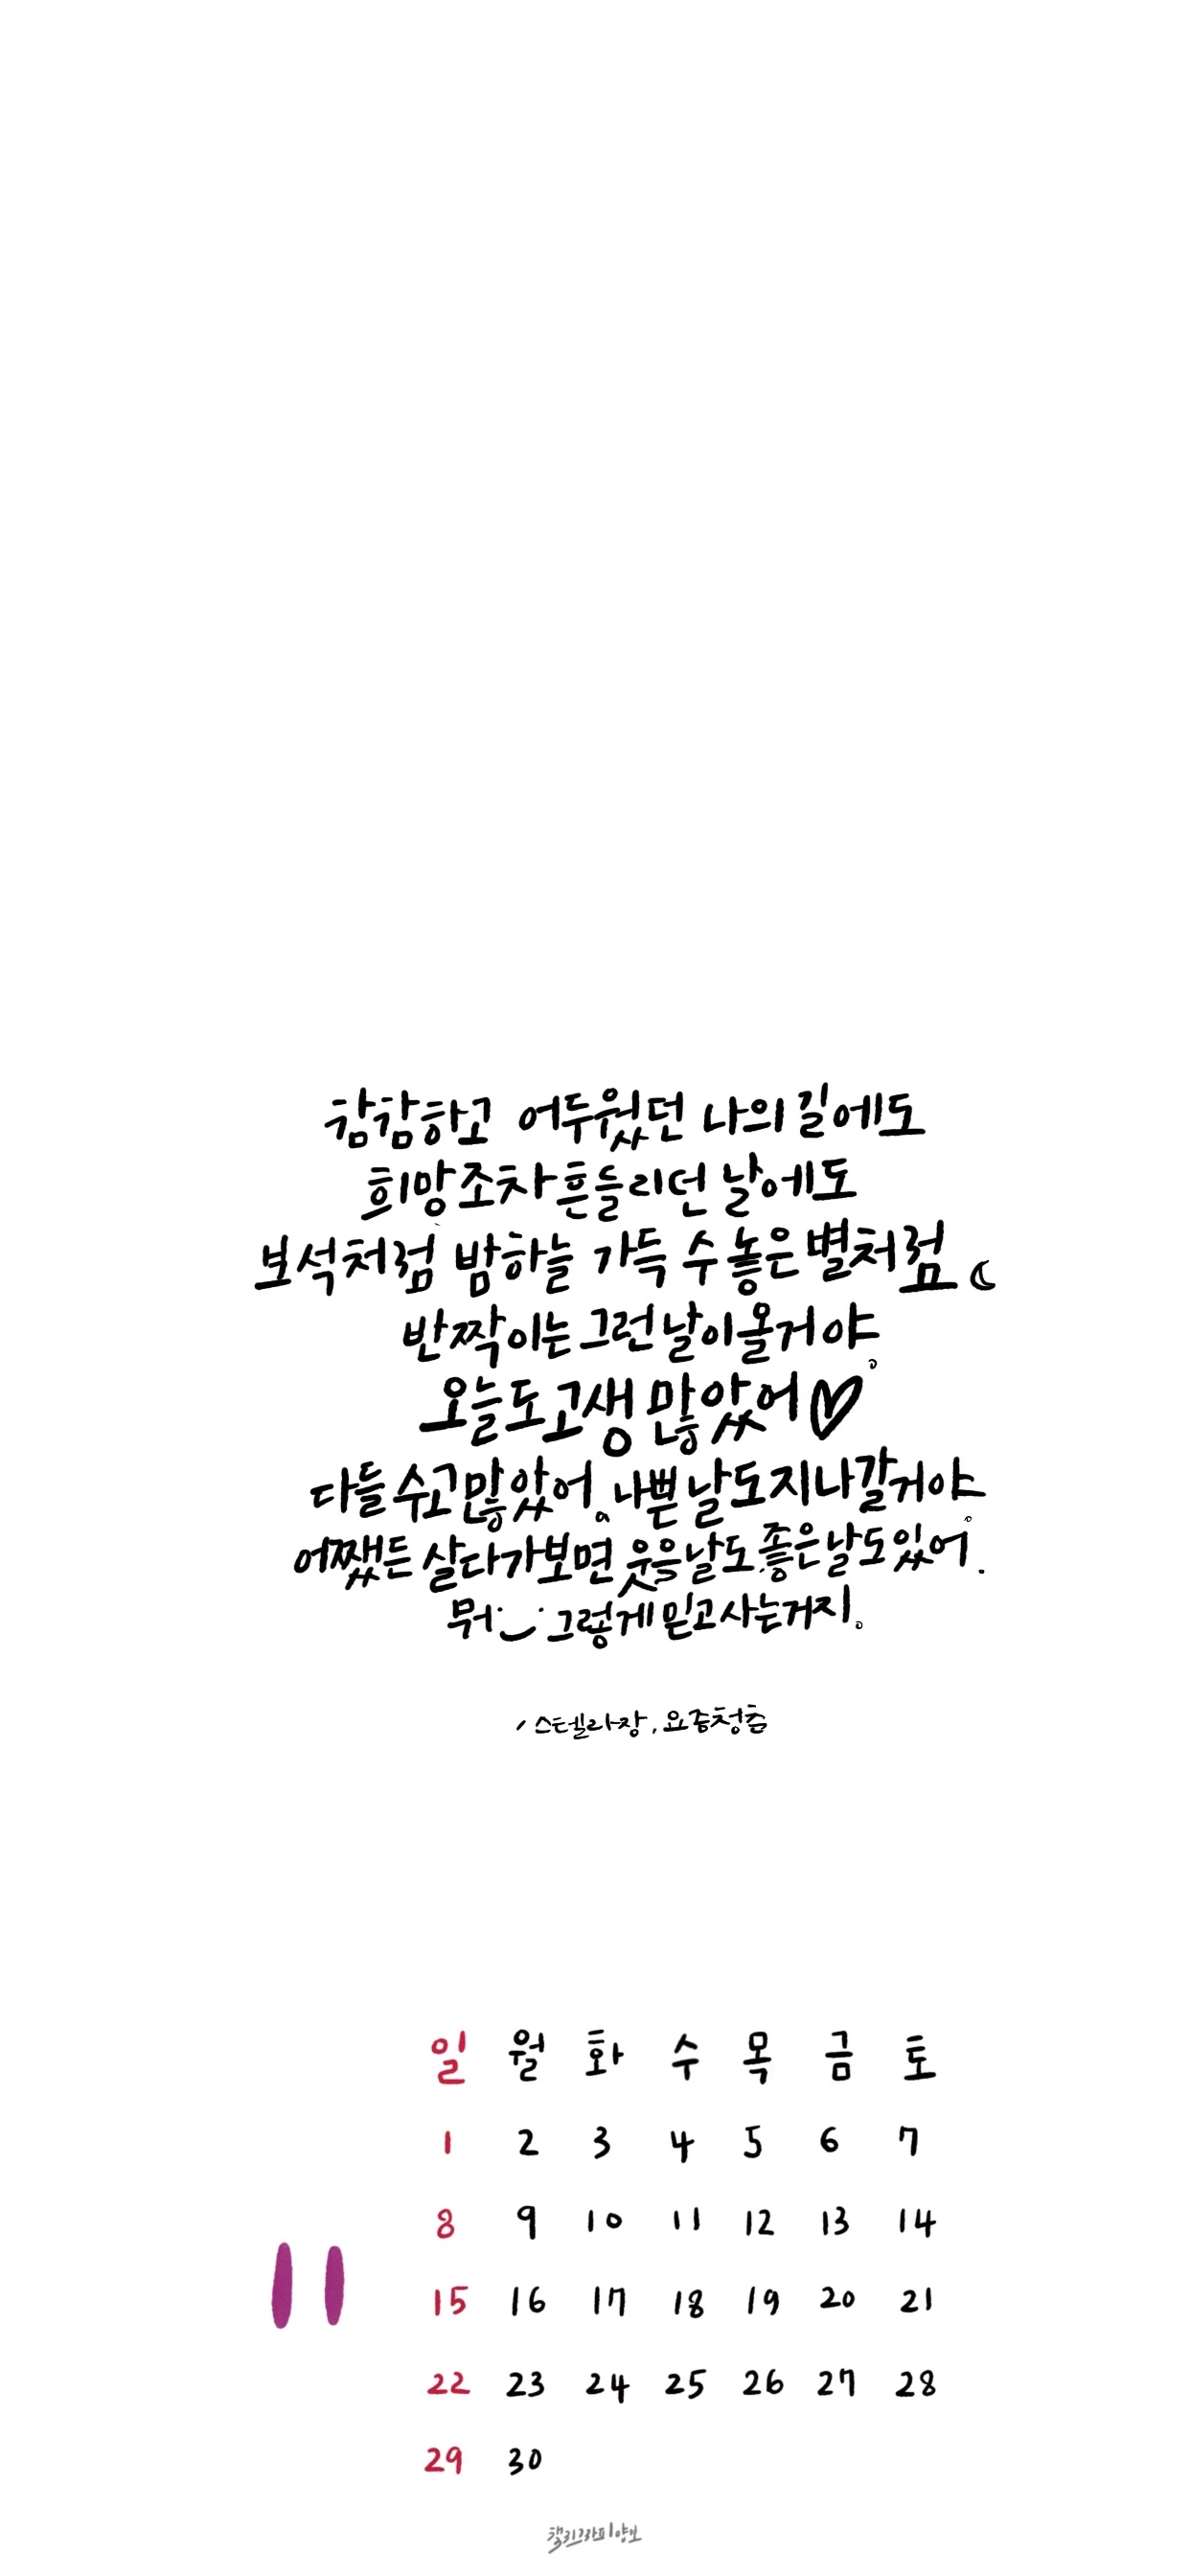 캄캄하고 어두웠던 나의 길에도
희망조차 흔들리던 날에도
보석처럼 밤하늘 가득 수 놓은 별처럼
반짝이는 그런 날이 올거야.
오늘도 고생 많았어♡
다들 수고 많았어. 나쁜 날도 지나갈거야.
어쨌든 살다가보면 웃을 날도, 좋은 날도 있어.
뭐 그렇게 믿고 사는거지.
/ 스텔라장, 요즘청춘
일 월 화 수 목 금 토
1 2 3 4 5 6 7
8 9 10 11 12 13 14
11
15 16 17 18 19 20 21
22 23 24 25 26 27 28
29 30